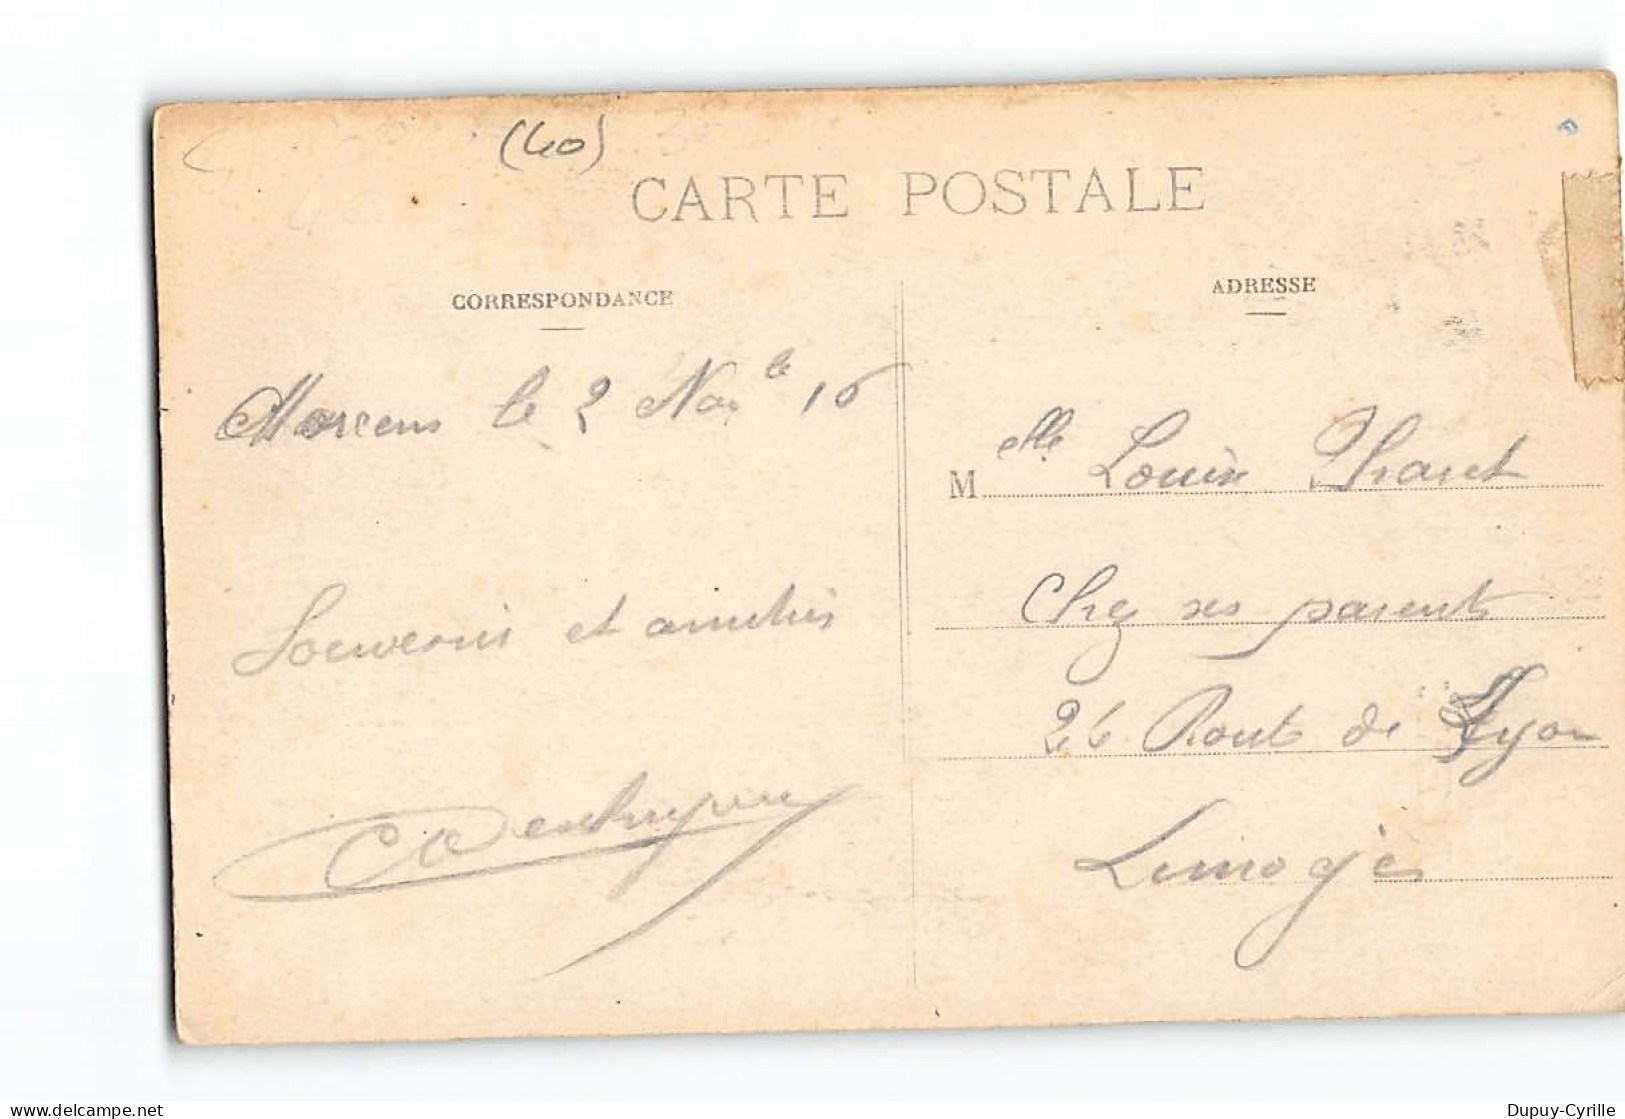 (40)
CARTE POSTALE
CORRESPONDANCE
Morcenx le 2 Nov. bre 16
Souvenirs et amitiés
ADRESSE
Melle Louise
Chez ses parents
26 Route de Lyon
Limoges
Dupuy-Cyrille
www.delcampe.net